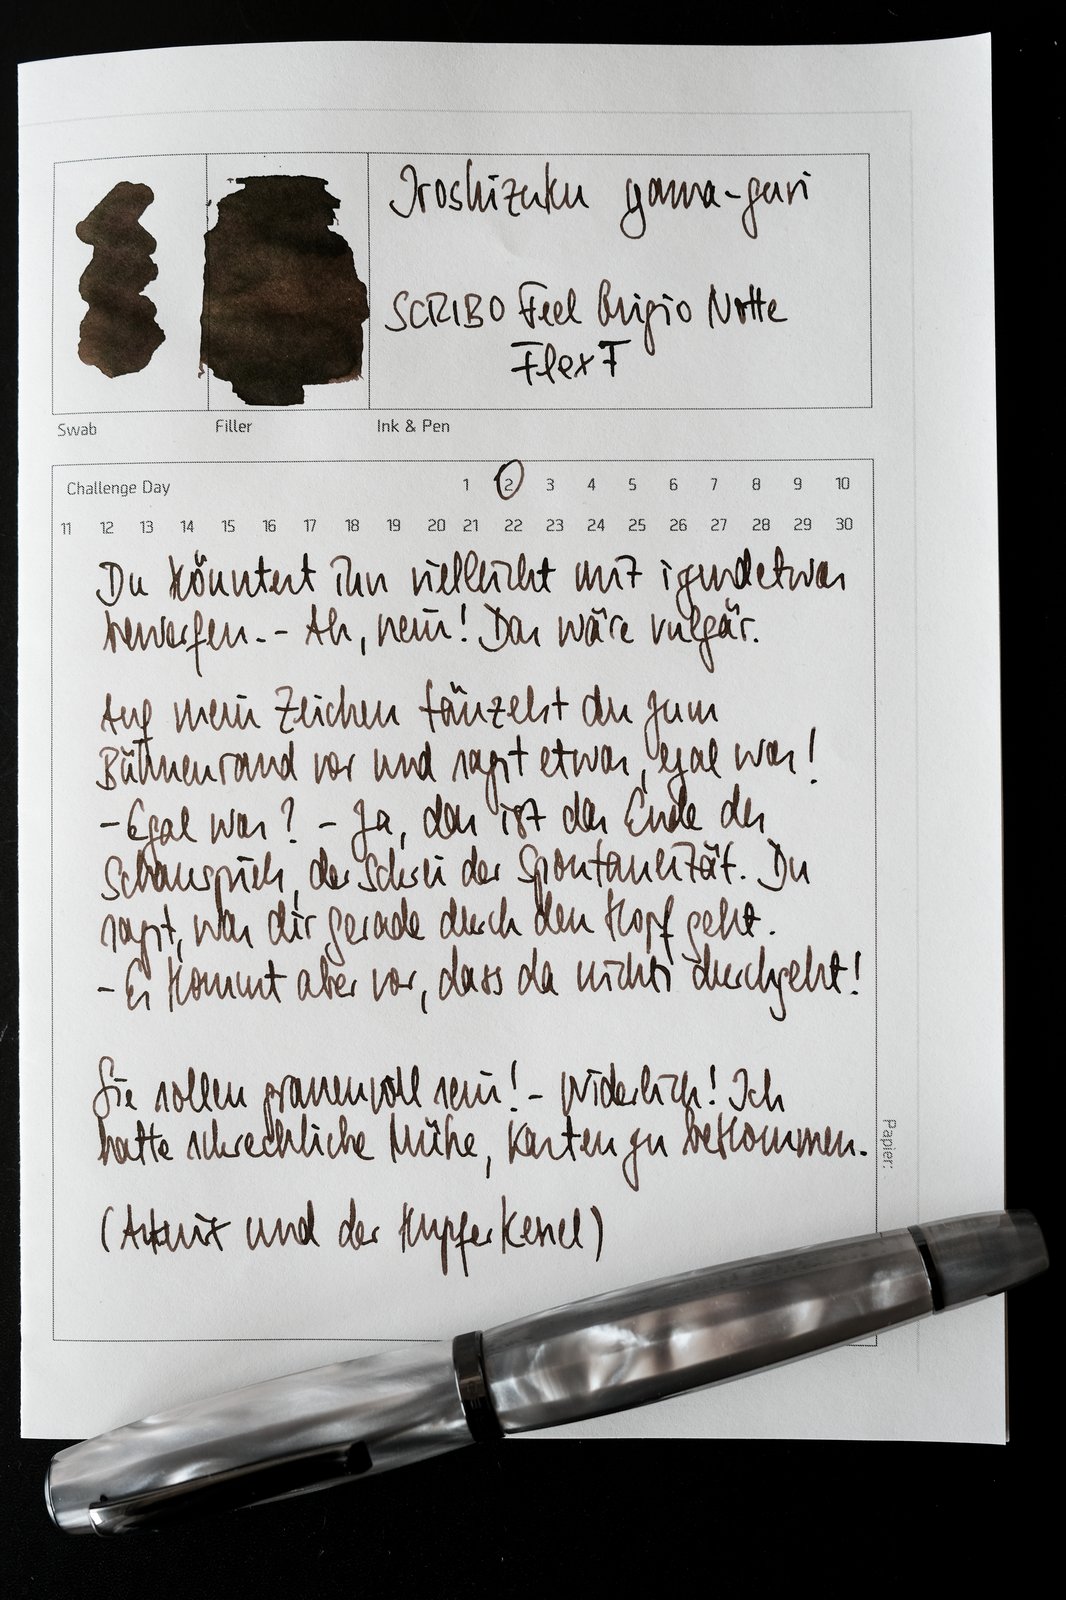 Iroshizuku yama-guri
SCRIBO Feel Grigio Notte
Flex F
Swab
Filler
Ink & Pen
Challenge Day 1 2 3 4 5 6 7 8 9 10
11 12 13 14 15 16 17 18 19 20 21 22 23 24 25 26 27 28 29 30
Du könntest ihn vielleicht mit irgendetwas
bewerfen. - Ah, nein! Das wäre vulgär.
Auf mein Zeichen tänzelst du zum
Bühnenrand vor und sagst etwas, egal was!
- Egal was? - Ja, das ist das Ende des
Schauspiels, der Schrei der Spontaneität. Du
sagst, was dir gerade durch den Kopf geht.
- Es kommt aber vor, dass da nichts durchgeht!
Sie sollen grauenvoll sein! - Widerlich! Ich
hatte schreckliche Mühe, Karten zu bekommen.
(Asterix und der Kupferkessel)
Papier: